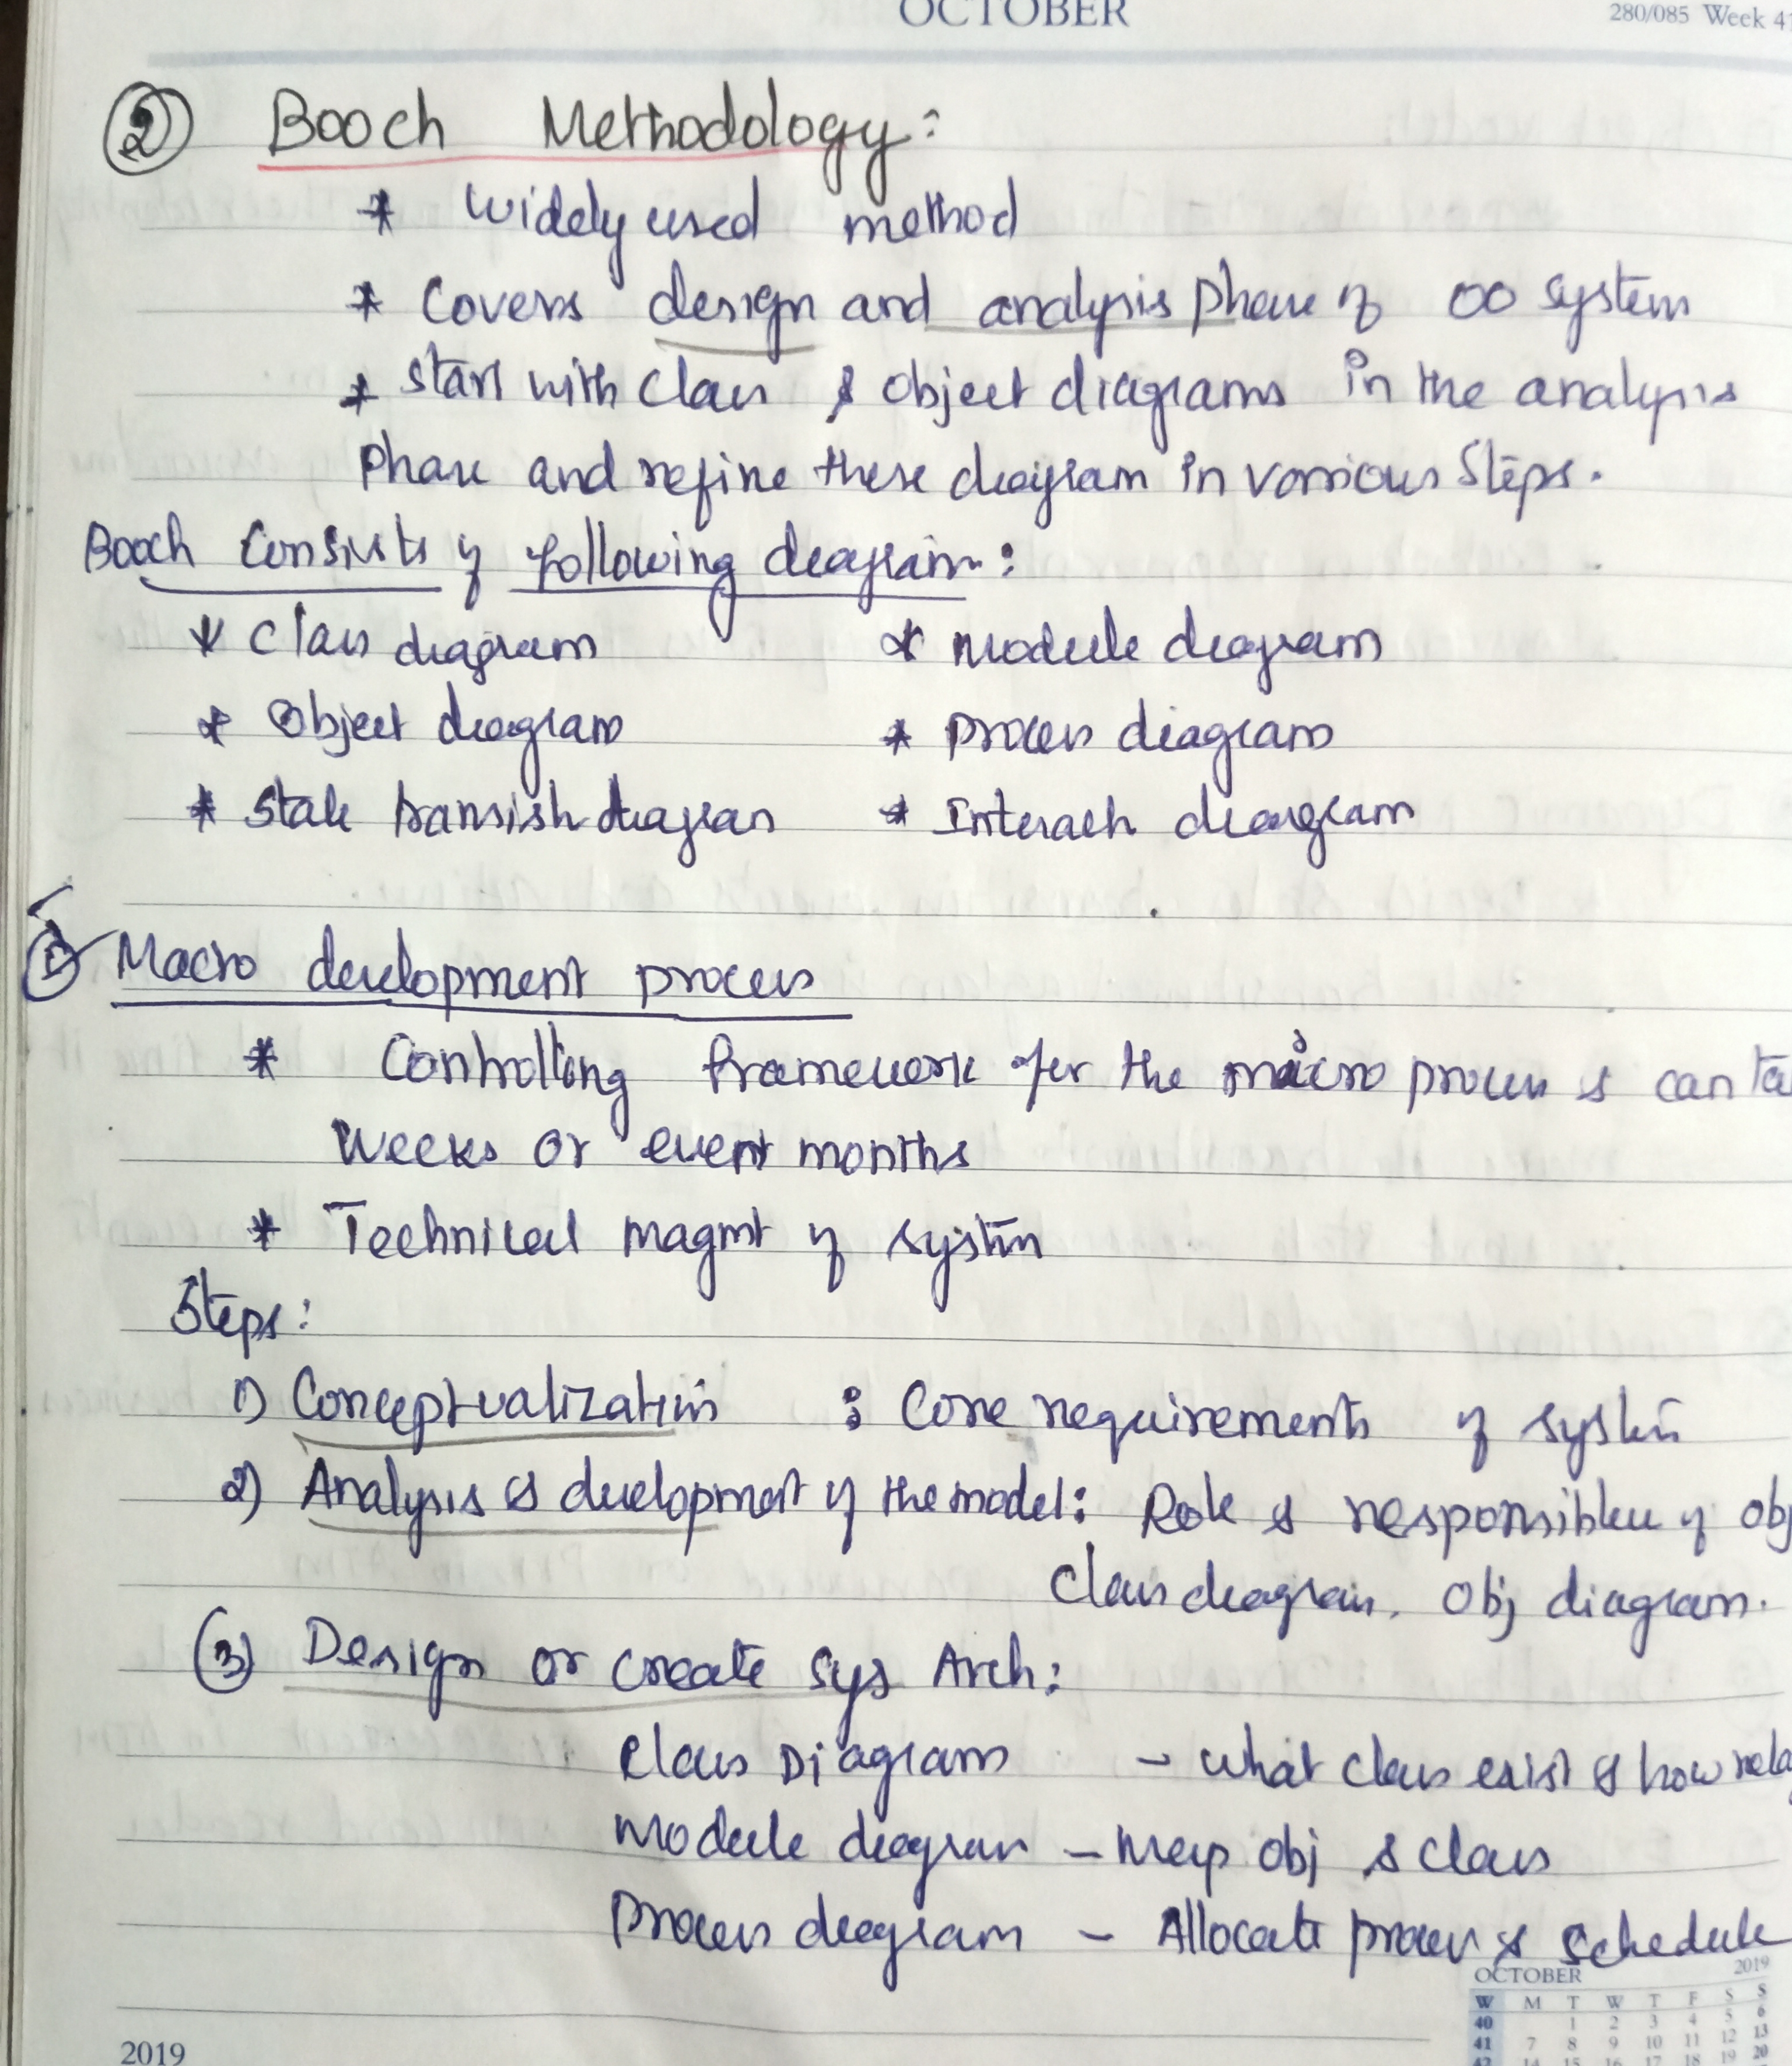 OCTOBER
280/085 Week 41
② Booch Methodology:
* Widely used method
* Covers design and analysis phase of OO system
* Start with class & object diagrams in the analysis
phase and refine these diagram in various steps.
Booch Consists of following diagram:
* Class diagram * Module diagram
* Object diagram * process diagram
* State transition diagram * Interactn diagram
① Macro development process
* Controlling framework for the micro process & can ta
weeks or event months
* Technical magmt of system
Steps:
1) Conceptualization : Core requirements of system
2) Analysis & development of the model: Role & responsiblee of obj
Class diagram, Obj diagram.
(3) Design or create sys Arch:
Class Diagram - what class exist & how rela
Module diagram - Map obj & class
process diagram - Allocate process & schedule
OCTOBER 2019
W M T W T F S S
40 1 2 3 4 5 6
41 7 8 9 10 11 12 13
42 14 15 16 17 18 19 20
2019